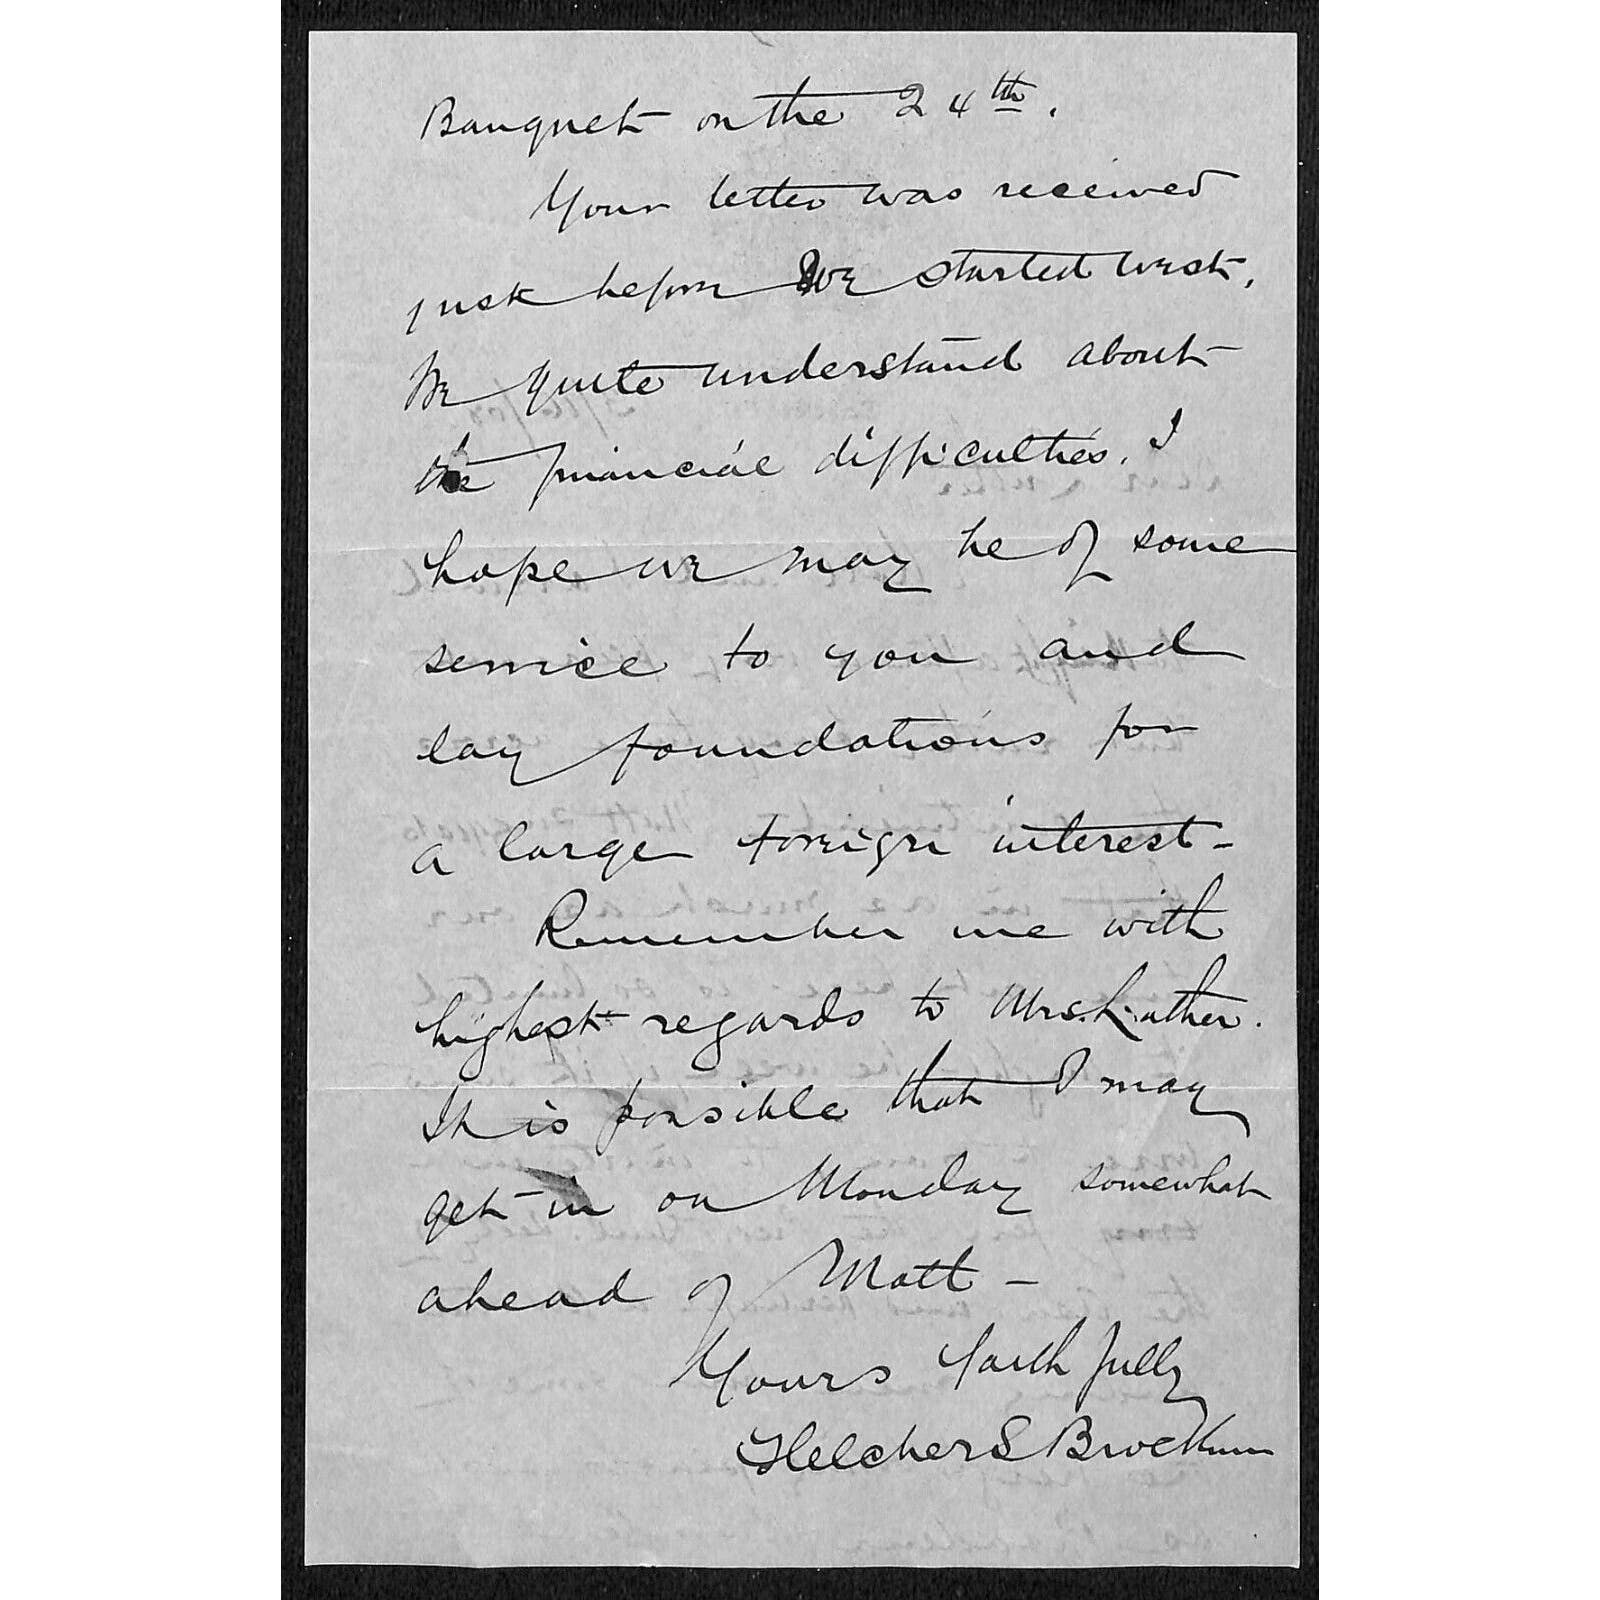 Banquet on the 24th.
Your letter was received
just before we started west.
We quite understand about
the financial difficulties. I
hope we may be of some
service to you and
lay foundations for
a large foreign interest -
Remember me with
highest regards to Mrs. Luther.
It is possible that I may
get in on Monday somewhat
ahead of Mott -
Yours faithfully
Fletcher S Brockman